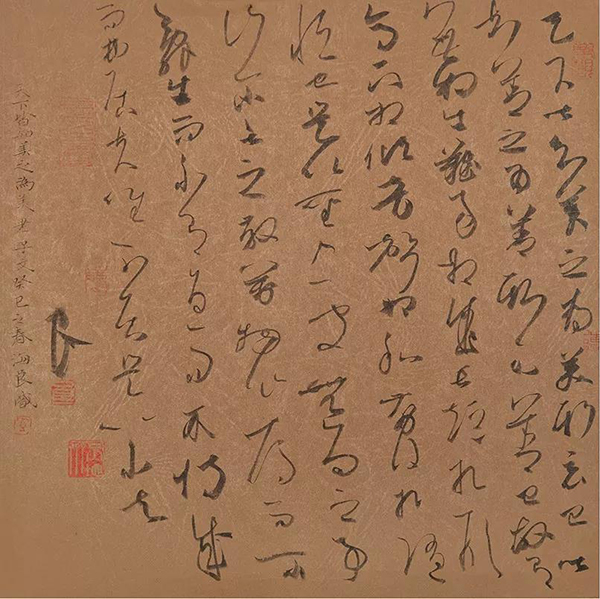 天下皆知美之為美斯惡已皆
知善之為善斯不善已故有
無相生難易相成長短相形
高下相傾音聲相和前後相隨
恒也是以聖人處無為之事
行不言之教萬物作焉而不
辭生而不有為而不恃成
而弗居夫唯弗居是以不去
天下皆知美之為美老子文癸巳之春海良識
良